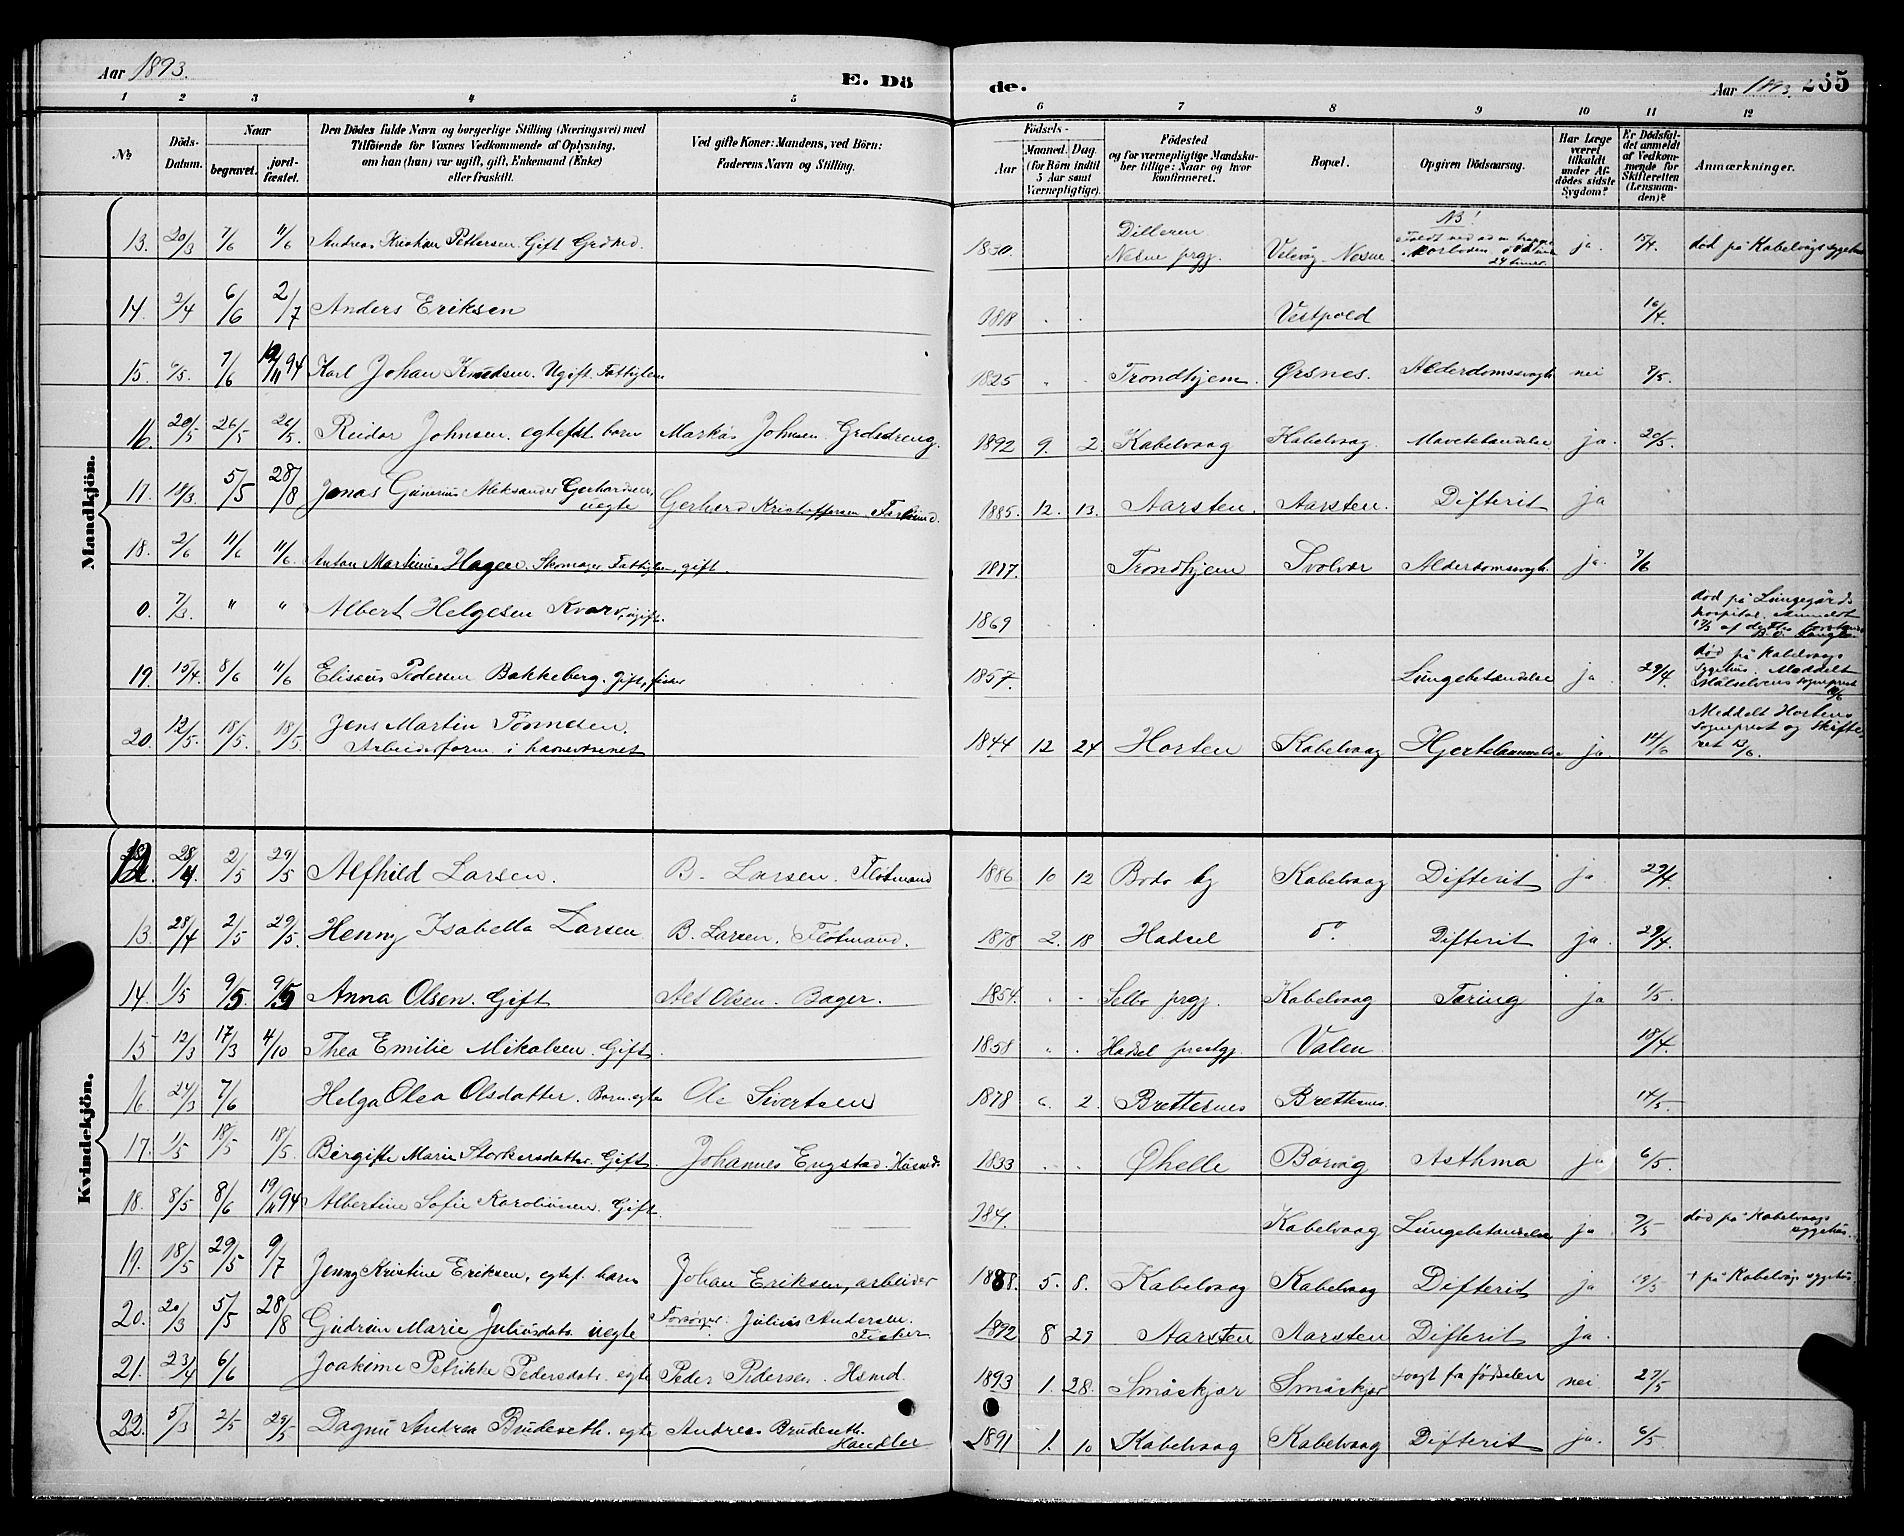 Aar 1893. E. Dö de. Aar 1893. 265
1 2 3 4 5 6 7 8 9 10 11 12
No. Döds-Datum. Naar begravet. jordfæstet. Den Dödes fulde Navn og borgerlige Stilling (Næringsvei) med Tilföiende for Voxnes Vedkommende af Oplysning, om han (hun) var ugift, gift, Enkemand (Enke) eller fraskilt. Ved gifte Koner: Mandens, ved Börn: Faderens Navn og Stilling. Födsels- Aar Maaned. Dag. (for Börn indtil 5 Aar samt Værnepligtige). Födested og for værnepligtige Mandskaber tillige: Naar og hvor konfirmeret. Bopæl. Opgiven Dödsaarsag. Har Læge været tilkaldt under Afdödes sidste Sygdom? Er Dödsfaldet anmeldt af Vedkommende for Skifteretten (Lensmanden)? Anmærkninger.
Mandkjön.
13. 20/3 7/6 11/6 Andreas Kristian Pettersen. Gift 1830. Nesne prgj. Nesne NB! 24 timer. ja. 15/4. død på Kabelvågs sygehus
14. 2/4 6/6 2/7 Anders Eriksen 1818 . . 16/4.
15. 6/5. 7/6 94 Karl Johan Knudsen. Ugift. Fattiglem 1825 . . Trondhjem. Ørsnes. Alderdomssvagh. nei 8/5.
16. 20/5 26/5 26/5. Reidar Johnsen. egtefdt barn Markus Johnsen. 1892 9. 2. Kabelvaag Kabelvaag. Mavebetændelse ja. 20/5.
17. 18/3. 5/5 28/8 Jonas Gunerius Aleksander Gerhardsen, uegte Gerhard Kristoffersen 1885. 12. 13. Aarsten. Aarsten. Difterit ja
18. 2/6 11/6 11/6. Anton Martinus Hagen. Skomager Fattiglem, gift. 1817. Trondhjem Svolvær Alderdomssvagh. ja. 7/6
0. 7/3. " " Albert Helgesen Kvarv, ugift. 1869 . . død på Lungegårds hospital.
19. 15/4 8/6 11/6 Elisæus Pedersen Bakkeberg. gift, fisker 1857. Lungebetændelse ja. 29/4. død på Kabelvaags sygehus. Meddelt Målselvens sogneprest
20. 12/5. 18/5. 18/5. Jens Martin Tønnesen. Arbeidsform. i havnevæsenet 1844 12 24 Horten Kabelvaag Hjertelammelse ja. 14/6 Meddelt Hortens sogneprest og Skifteret 13/6.
Kvindekjön.
12. 28/4 2/5 29/5 Alfhild Larsen. B. Larsen. Fløtmand 1886 10 12 Bodø by Kabelvaag Difterit ja 29/4.
13. 28/4 2/5 29/5. Henny Isabella Larsen B. Larsen. Fløtmand. 1878 2. 18 Hadsel do. Difterit ja. 29/4.
14. 1/5 9/5 9/5 Anna Olsen. Gift Olsen. Bager. 1854. . . Selbo prgj. Kabelvaag Tæring ja 1/5.
15 12/3 17/3 4/10 Thea Emilie Mikalsen. Gift. 1858 . . Hadsel prestgj. Valen 18/4.
16. 24/3 7/6 Helga Olea Olsdatter. Barn. egte Ole Sivertsen 1878 6. 2. Brettesnes Brettesnes. 14/5.
17. 1/5 18/5 18/5. Bergitte Marie Storkersdatter. Gift Johannes Engstad. Husmd. 1833 . . Ørsvåg Asthma ja 6/5.
18. 8/5 8/6 94 Albertine Sofie Karoliusen. Gift. 184 Kabelvaag Lungebetændelse ja 9/5 død på Kabelvaags sygehus.
19. 18/5 29/5 9/7 Jenny Kristine Eriksen, egtef. barn Johan Eriksen, arbeider 1888. 5. 8. Kabelvaag Kabelvaag Difterit ja 19/5 + på Kabelvågs sygehus.
20. 20/3 5/5 28/8 Gudrun Marie Juliusdatr. uegte Julius Andersen. Fisker 1892 8 27 Aarsten Aarsten Difterit ja.
21. 23/4 6/6 Joakime Petrikke Pedersdatr. egte Peder Pedersen. Hsmd. 1893 1. 28. Småskjær Småskjær svagt fra fødselen nei 27/5
22. 5/3 2/5 29/5 Dagny Andrea Brudeseth. egte Andreas Brudeseth. Handler 1891 1. 10 Kabelvaag Kabelvaag Difterit ja. 6/5